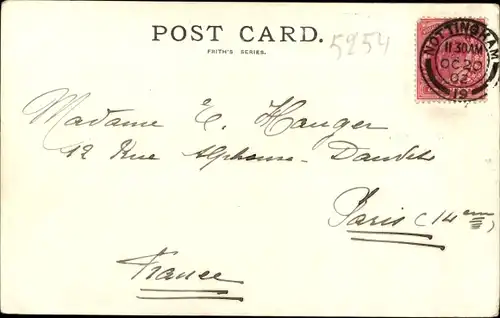 POST CARD.
FRITH'S SERIES.
5954
NOTTINGHAM
11.30AM
OC 20
02
19
Madame E. Hauger
12 Rue Alphonse-Daudet
Paris (14em)
France